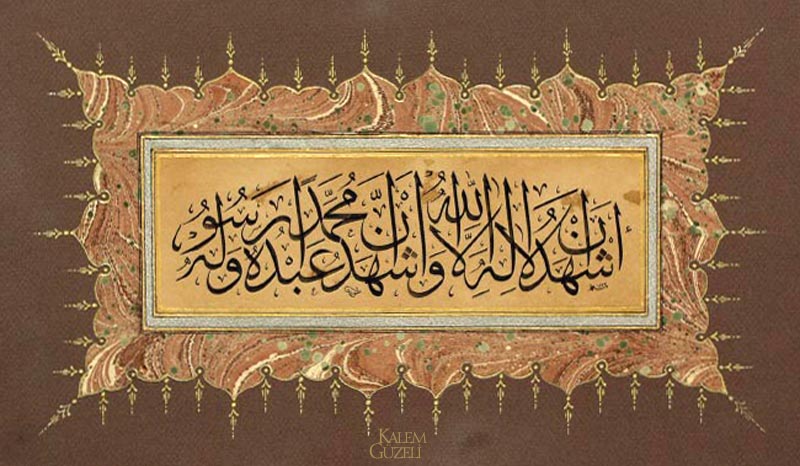 أشهد أن لا إله إلا الله وأشهد أن محمدًا عبده ورسوله
KALEM
GÜZELİ